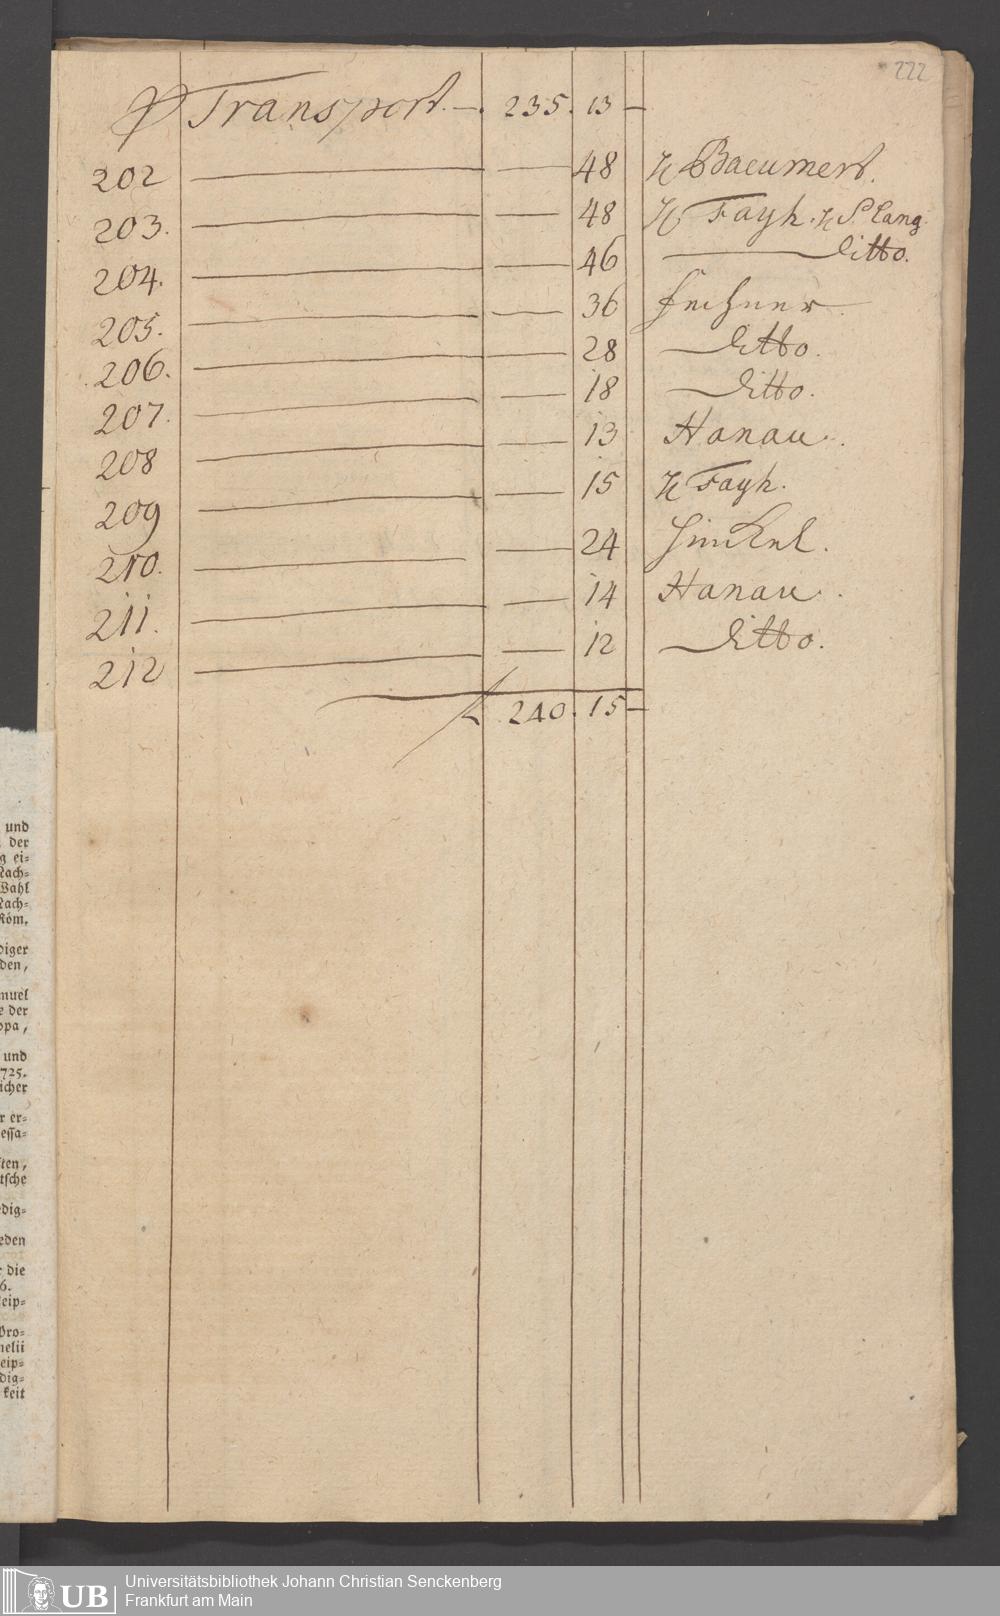 222
Transport. — 235. 13 —
202 — — 48 H Baeumert.
203. — — 48 H Fayh. H S. Lang
204. — — 46 — ditto.
205. — — 36
206. — — 28 — ditto.
207. — — 18 — ditto.
208 — — 13 Hanau.
209 — — 15 H Fayh.
210. — — 24 Hinkel.
211. — — 14 Hanau.
212 — — 12 — ditto.
240. 15 —
und
der
g ei-
Nach-
Wahl
Nach-
Röm.
diger
den,
muel
e der
opa,
und
725.
icher
r er-
essa-
ten,
tsche
dig-
eden
die
6.
eip-
Gro-
nelii
eip-
dig-
keit
UB
Universitätsbibliothek Johann Christian Senckenberg
Frankfurt am Main